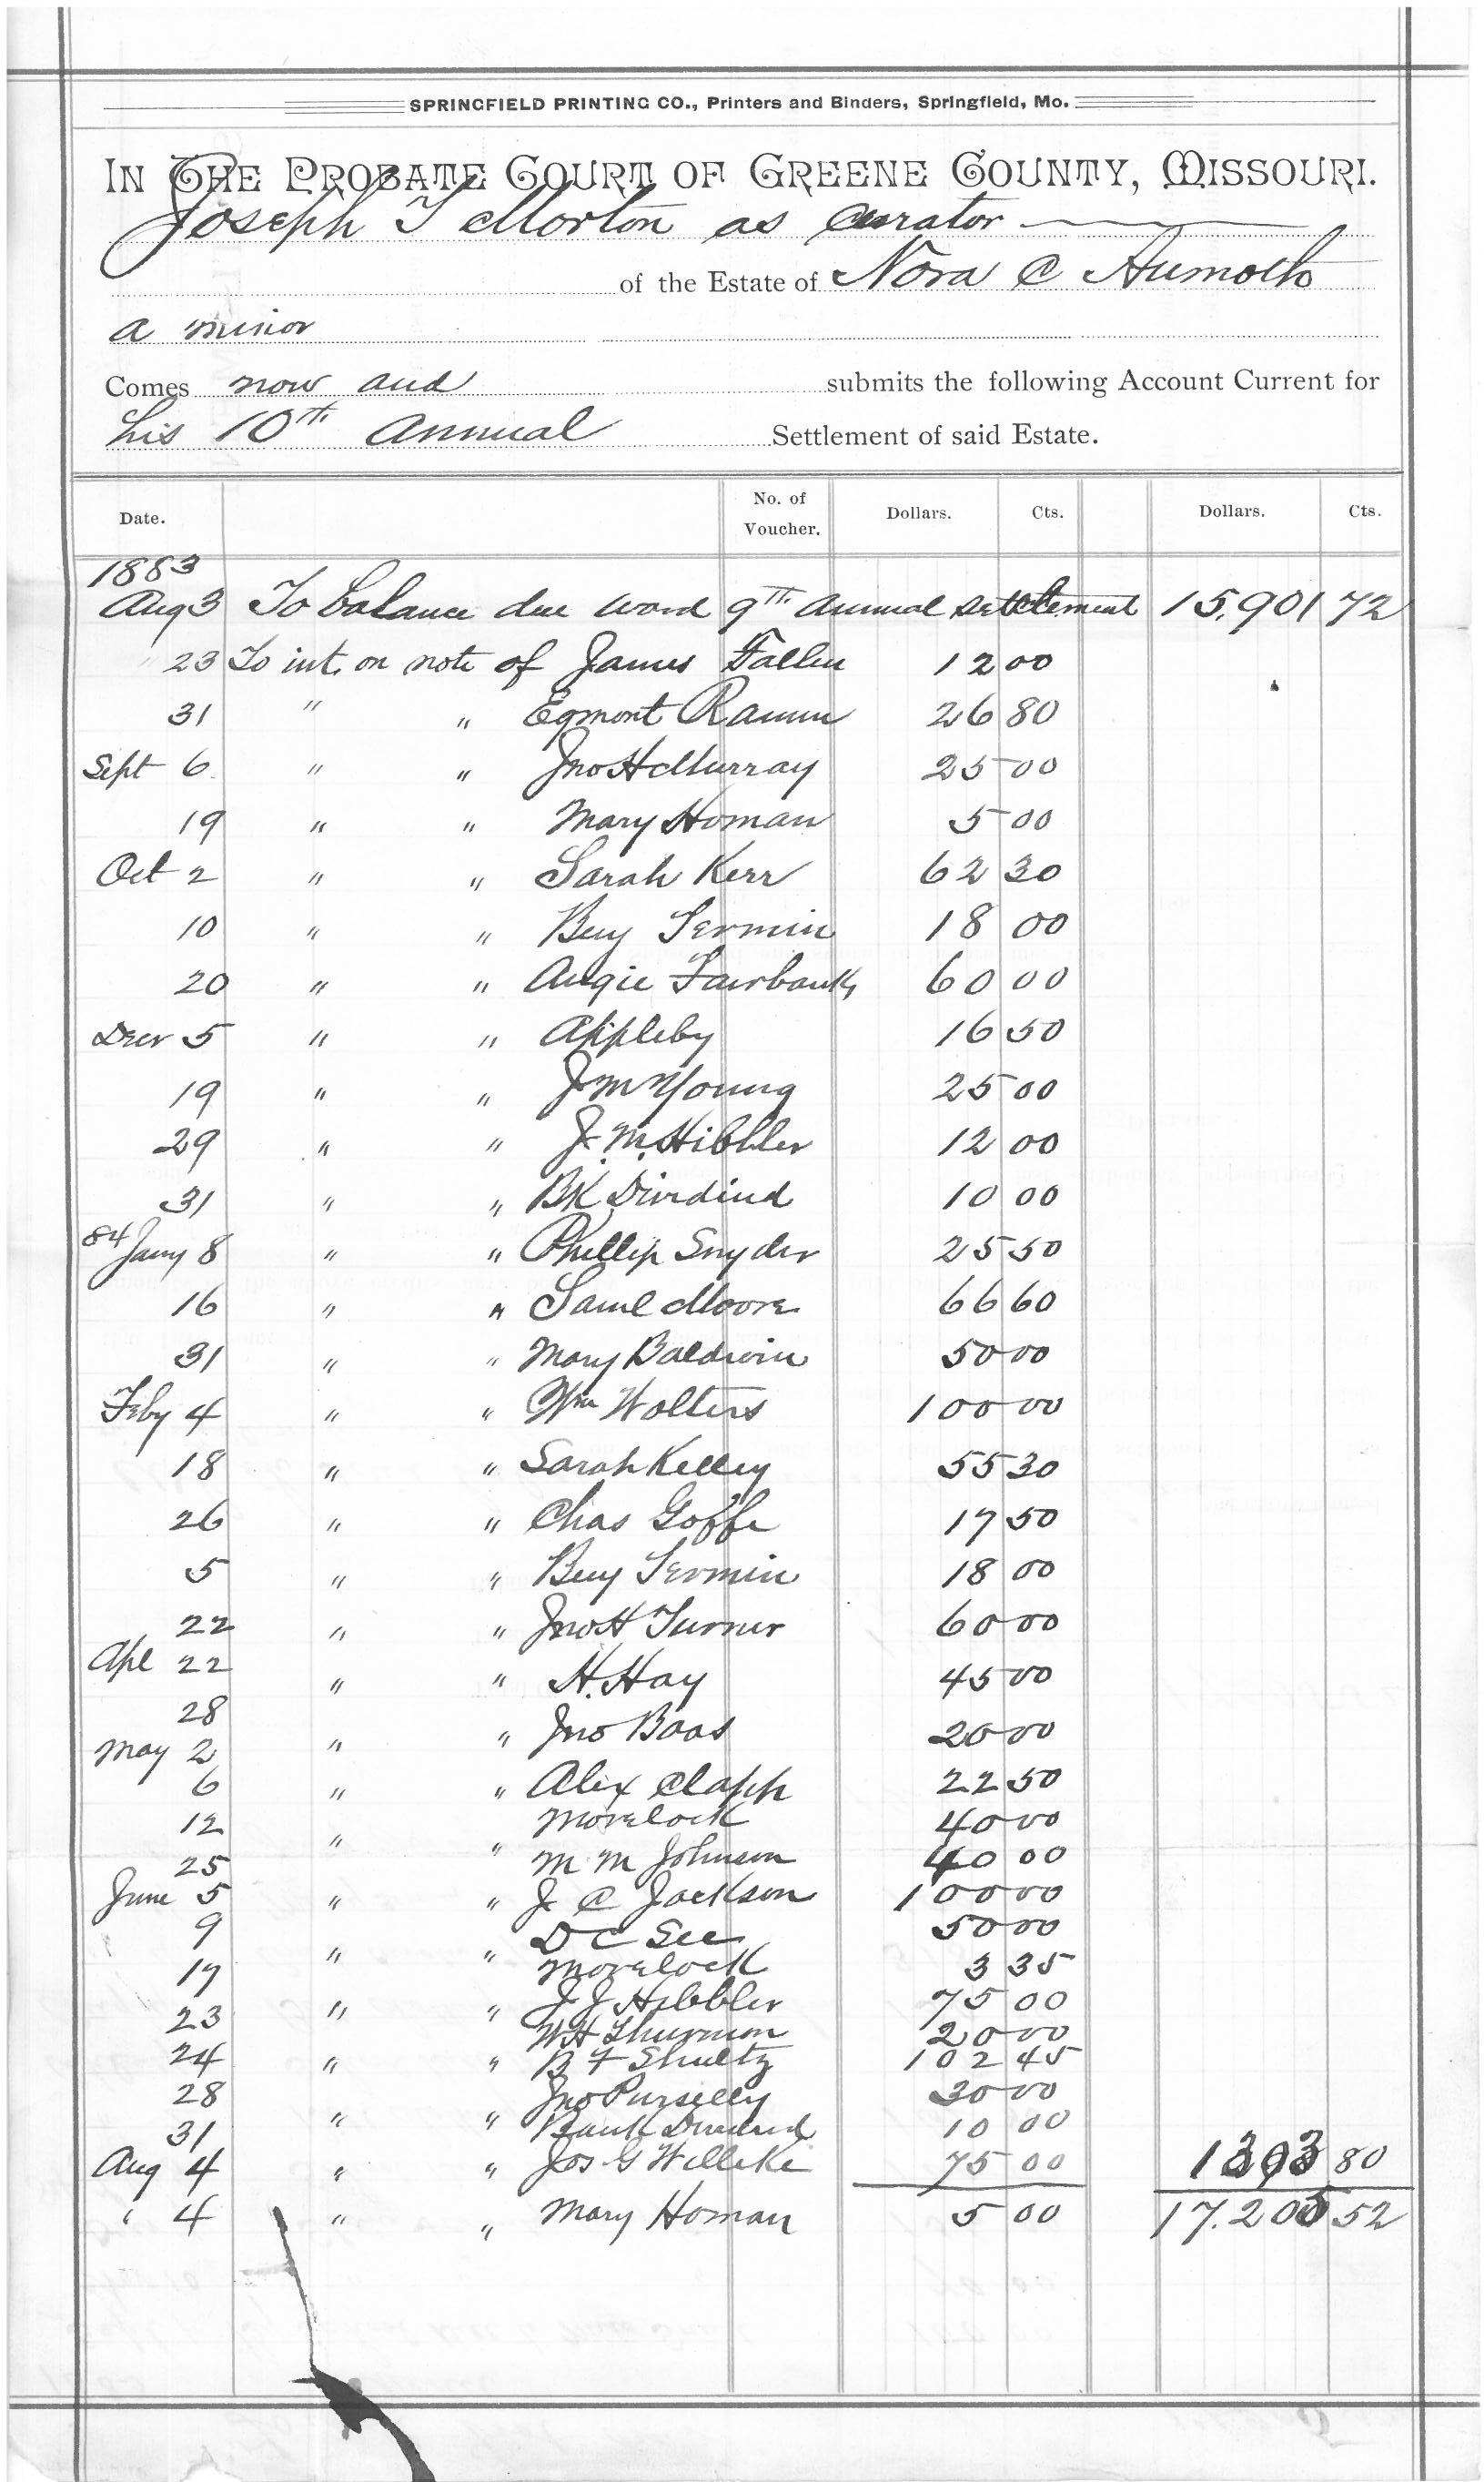 SPRINGFIELD PRINTING CO., Printers and Binders, Springfield, Mo.
IN THE PROBATE COURT OF GREENE COUNTY, MISSOURI.
Joseph T Morton as Curator
of the Estate of Nora C
a minor
Comes now and submits the following Account Current for
his 10th Annual Settlement of said Estate.
Date. No. of Voucher. Dollars. Cts. Dollars. Cts.
1883
Aug 3 To balance due ward 9th Annual Settlement 15,901 72
23 To int. on note of James Fallin 12 00
31 " " Egmont Ramm 26 80
Sept 6 " " Jno H Murray 25 00
19 " " Mary Homan 5 00
Oct 2 " " Sarah Kerr 62 30
10 " " Benj 18 00
20 " " Angie Fairbanks 60 00
Decr 5 " " Appleby 16 50
19 " " J M Young 25 00
29 " " J. M. Hibbler 12 00
31 " " BK Dividend 10 00
84 Jany 8 " " Phillip Snyder 25 50
16 " " Saml Moore 66 60
31 " " Mary Baldwin 50 00
Feby 4 " " Wm Wolters 100 00
18 " " Sarah Kelley 55 30
26 " " Chas Goffe 17 50
5 " " Benj 18 00
22 " " Jno H Turner 60 00
Apl 22 " " H. Hay 45 00
28
May 2 " " Jno Baas 20 00
6 " " Alex Clapp 22 50
12 " " Morelock 40 00
25 M M Johnson 40 00
June 5 " " J C Jackson 100 00
9 D C See 50 00
17 " " Morelock 3 35
23 " " J J Hibbler 75 00
W H Thurmon 20 00
24 " " B F Shultz 102 45
28 Jno Purselly 30 00
31 " " Bank Dividend 10 00
Aug 4 " " Jos G Willeke 75 00 1303 80
" 4 " " Mary Homan 5 00 17.205 52